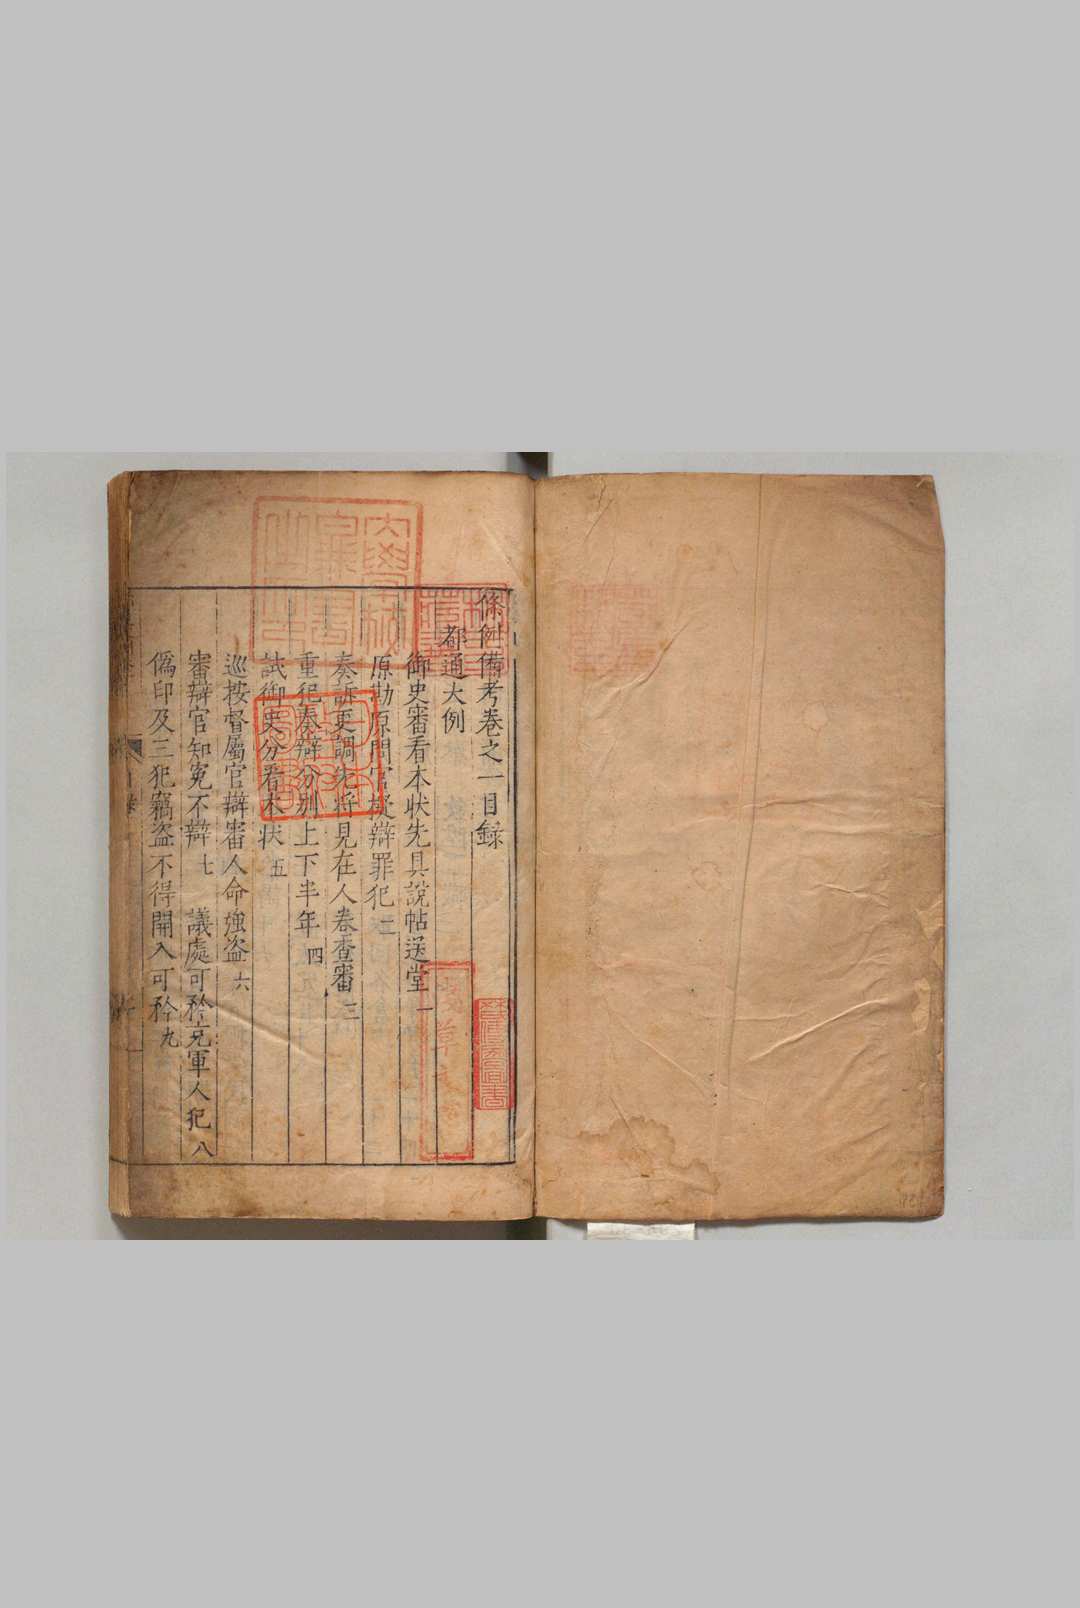 條例備考卷之一目録
都通大例
御史審看本狀先具說帖送堂一
原勘原問官擬辯罪犯二
奏訴更調先將見在人卷查審三
重犯奏辯分別上下半年四
試御史分看本狀五
巡按督屬官辯審人命強盗六
審辯官知冤不辯七 議處可矜充軍人犯八
僞印及三犯竊盗不得開入可矜九